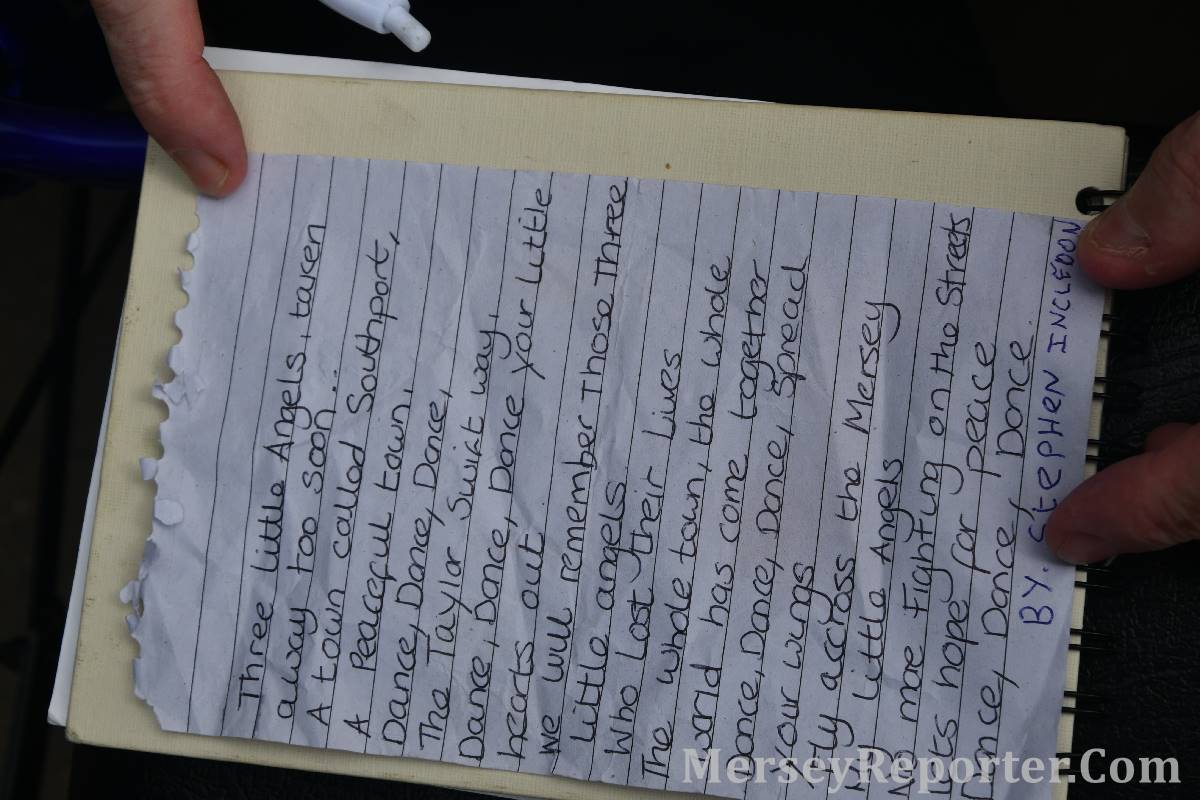 Three little Angels, taken
away too soon...
A town called Southport,
A Peaceful town,
Dance, Dance, Dance,
The Taylor Swift way,
Dance, Dance, Dance your little
hearts out
We will remember Those Three
Little angels
Who Lost their Lives
The whole town, the whole
world has come together
Dance, Dance, Dance, Spread
Your wings
Fly accross the Mersey
My little Angels
No more Fighting on the Streets
Lets hope for peace
Dance, Dance, Dance
BY. STEPHEN INCLEDON
MerseyReporter.Com